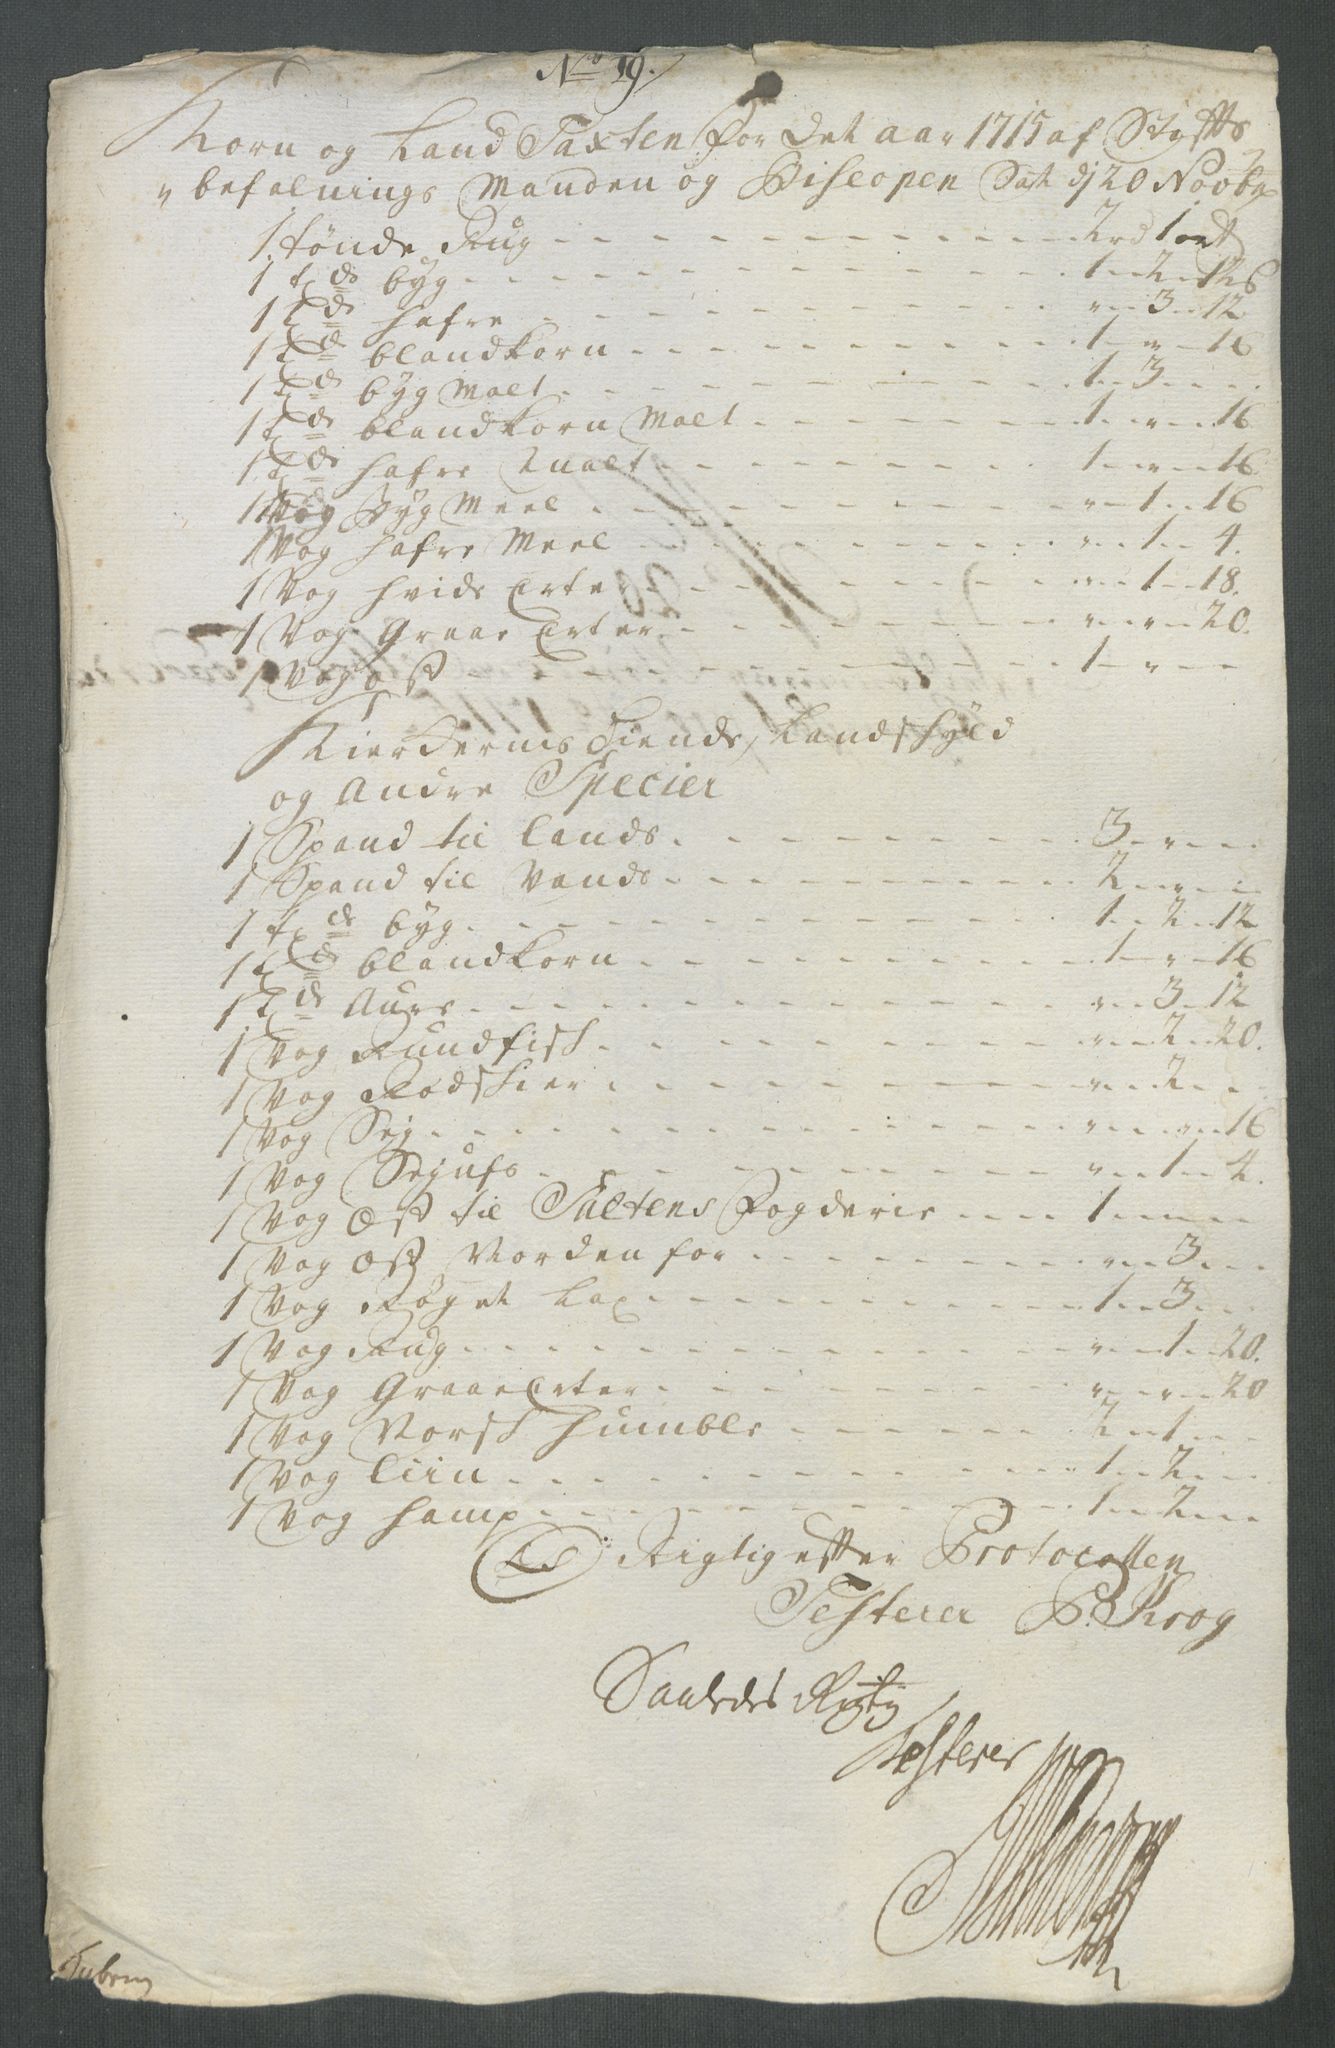 No 19.
Korn og Land Taxten for det aar 1715 af Stifts
befalnings Manden og Biscopen Sat dj 20 Novbr
1 tønde Rug - - - 2 rd 1 ort
1 td byg - - - 1 - 2 - 12 s
1 td hafre - - - " - 3 - 12
1 td blandkorn - - - 1 - " - 16
1 td byg Malt - - - 1 - 3 - -
1 td blandkorn Malt - - - 1 - " - 16
1 td hafre Malt - - - 1 - " - 16
1 Vog Byg Meel - - - " - 1 - 16
1 Vog hafre Meel - - - " - 1 - 4.
1 Vog hvide Erter - - - " - 1 - 18.
1 Vog Graae Erter - - - " - " - 20.
1 Vog ost - - - 1 - " - -
Kierkernis Tiende, Landskyld
og Andre Specier
1 Spand til Lands - - - 3 - " - -
1 Spand til Vands - - - 2 - " - -
1 td byg - - - 1 - 2 - 12
1 td blandkorn - - - 1 - " - 16
1 td Aure - - - " - 3 - 12
1 Vog Rundfisk - - - " - 2 - 20.
1 Vog Rodskier - - - " - 2 - -
1 Vog Sej - - - " - " - 16
1 Vog Sejufs - - - " - 1 - 4.
1 Vog Ost til Saltens Fogderie - - - 1 - " - -
1 Vog Ost Norden for - - - " - 3 - -
1 Vog Røget Lax - - - 1 - 3 - -
1 Vog Rug - - - " - 1 - 20.
1 Vog Graae Erter - - - " - " - 20
1 Vog Norsk humble - - - 2 - 1 - -
1 Vog Liin - - - 1 - 2 - -
1 Vog hamp - - - 1 - 2 - -
LS Rigtig efter Protocollen
Testerer P. Krog
Saaledes Rigtig
Testerer